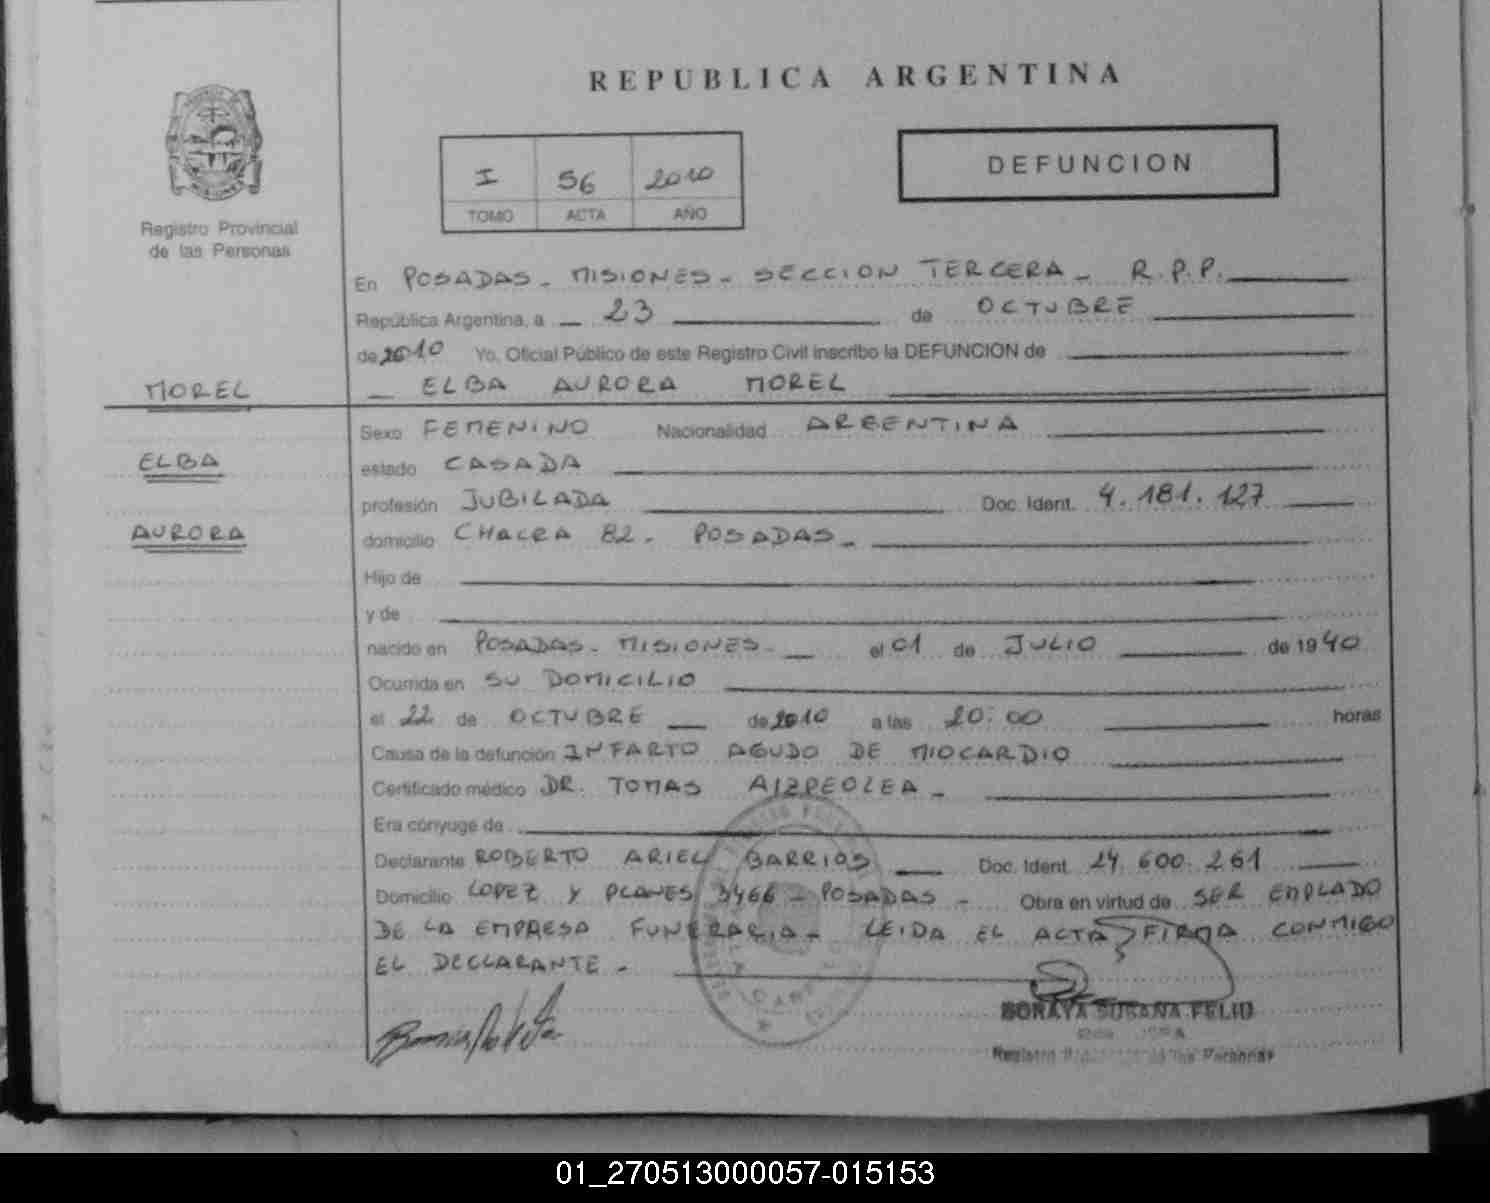 REPUBLICA ARGENTINA
Registro Provincial
de las Personas
I 56 2010
TOMO ACTA AÑO
DEFUNCION
En POSADAS - MISIONES - SECCION TERCERA - R.P.P.
República Argentina, a 23 de OCTUBRE
de 2010 Yo, Oficial Público de este Registro Civil inscribo la DEFUNCION de
MOREL
ELBA AURORA MOREL
Sexo FEMENINO Nacionalidad ARGENTINA
ELBA
estado CASADA
profesión JUBILADA Doc. Ident. 4.181.127
AURORA
domicilio CHACRA 82 - POSADAS -
Hijo de
y de
nacido en POSADAS - MISIONES - el 01 de JULIO de 1940
Ocurrida en SU DOMICILIO
el 22 de OCTUBRE de 2010 a las 20:00 horas
Causa de la defunción INFARTO AGUDO DE MIOCARDIO
Certificado médico DR. TOMAS AIZPEOLEA -
Era cónyuge de
Declarante ROBERTO ARIEL BARRIOS Doc. Ident. 24.600.261
Domicilio LOPEZ Y PLANES 3466 - POSADAS - Obra en virtud de SER EMPLADO
DE LA EMPRESA FUNERARIA - LEIDA EL ACTA, FIRMA CONMIGO
EL DECLARANTE -
SORAYA SUSANA FELIU
Registro de las Personas
01_270513000057-015153